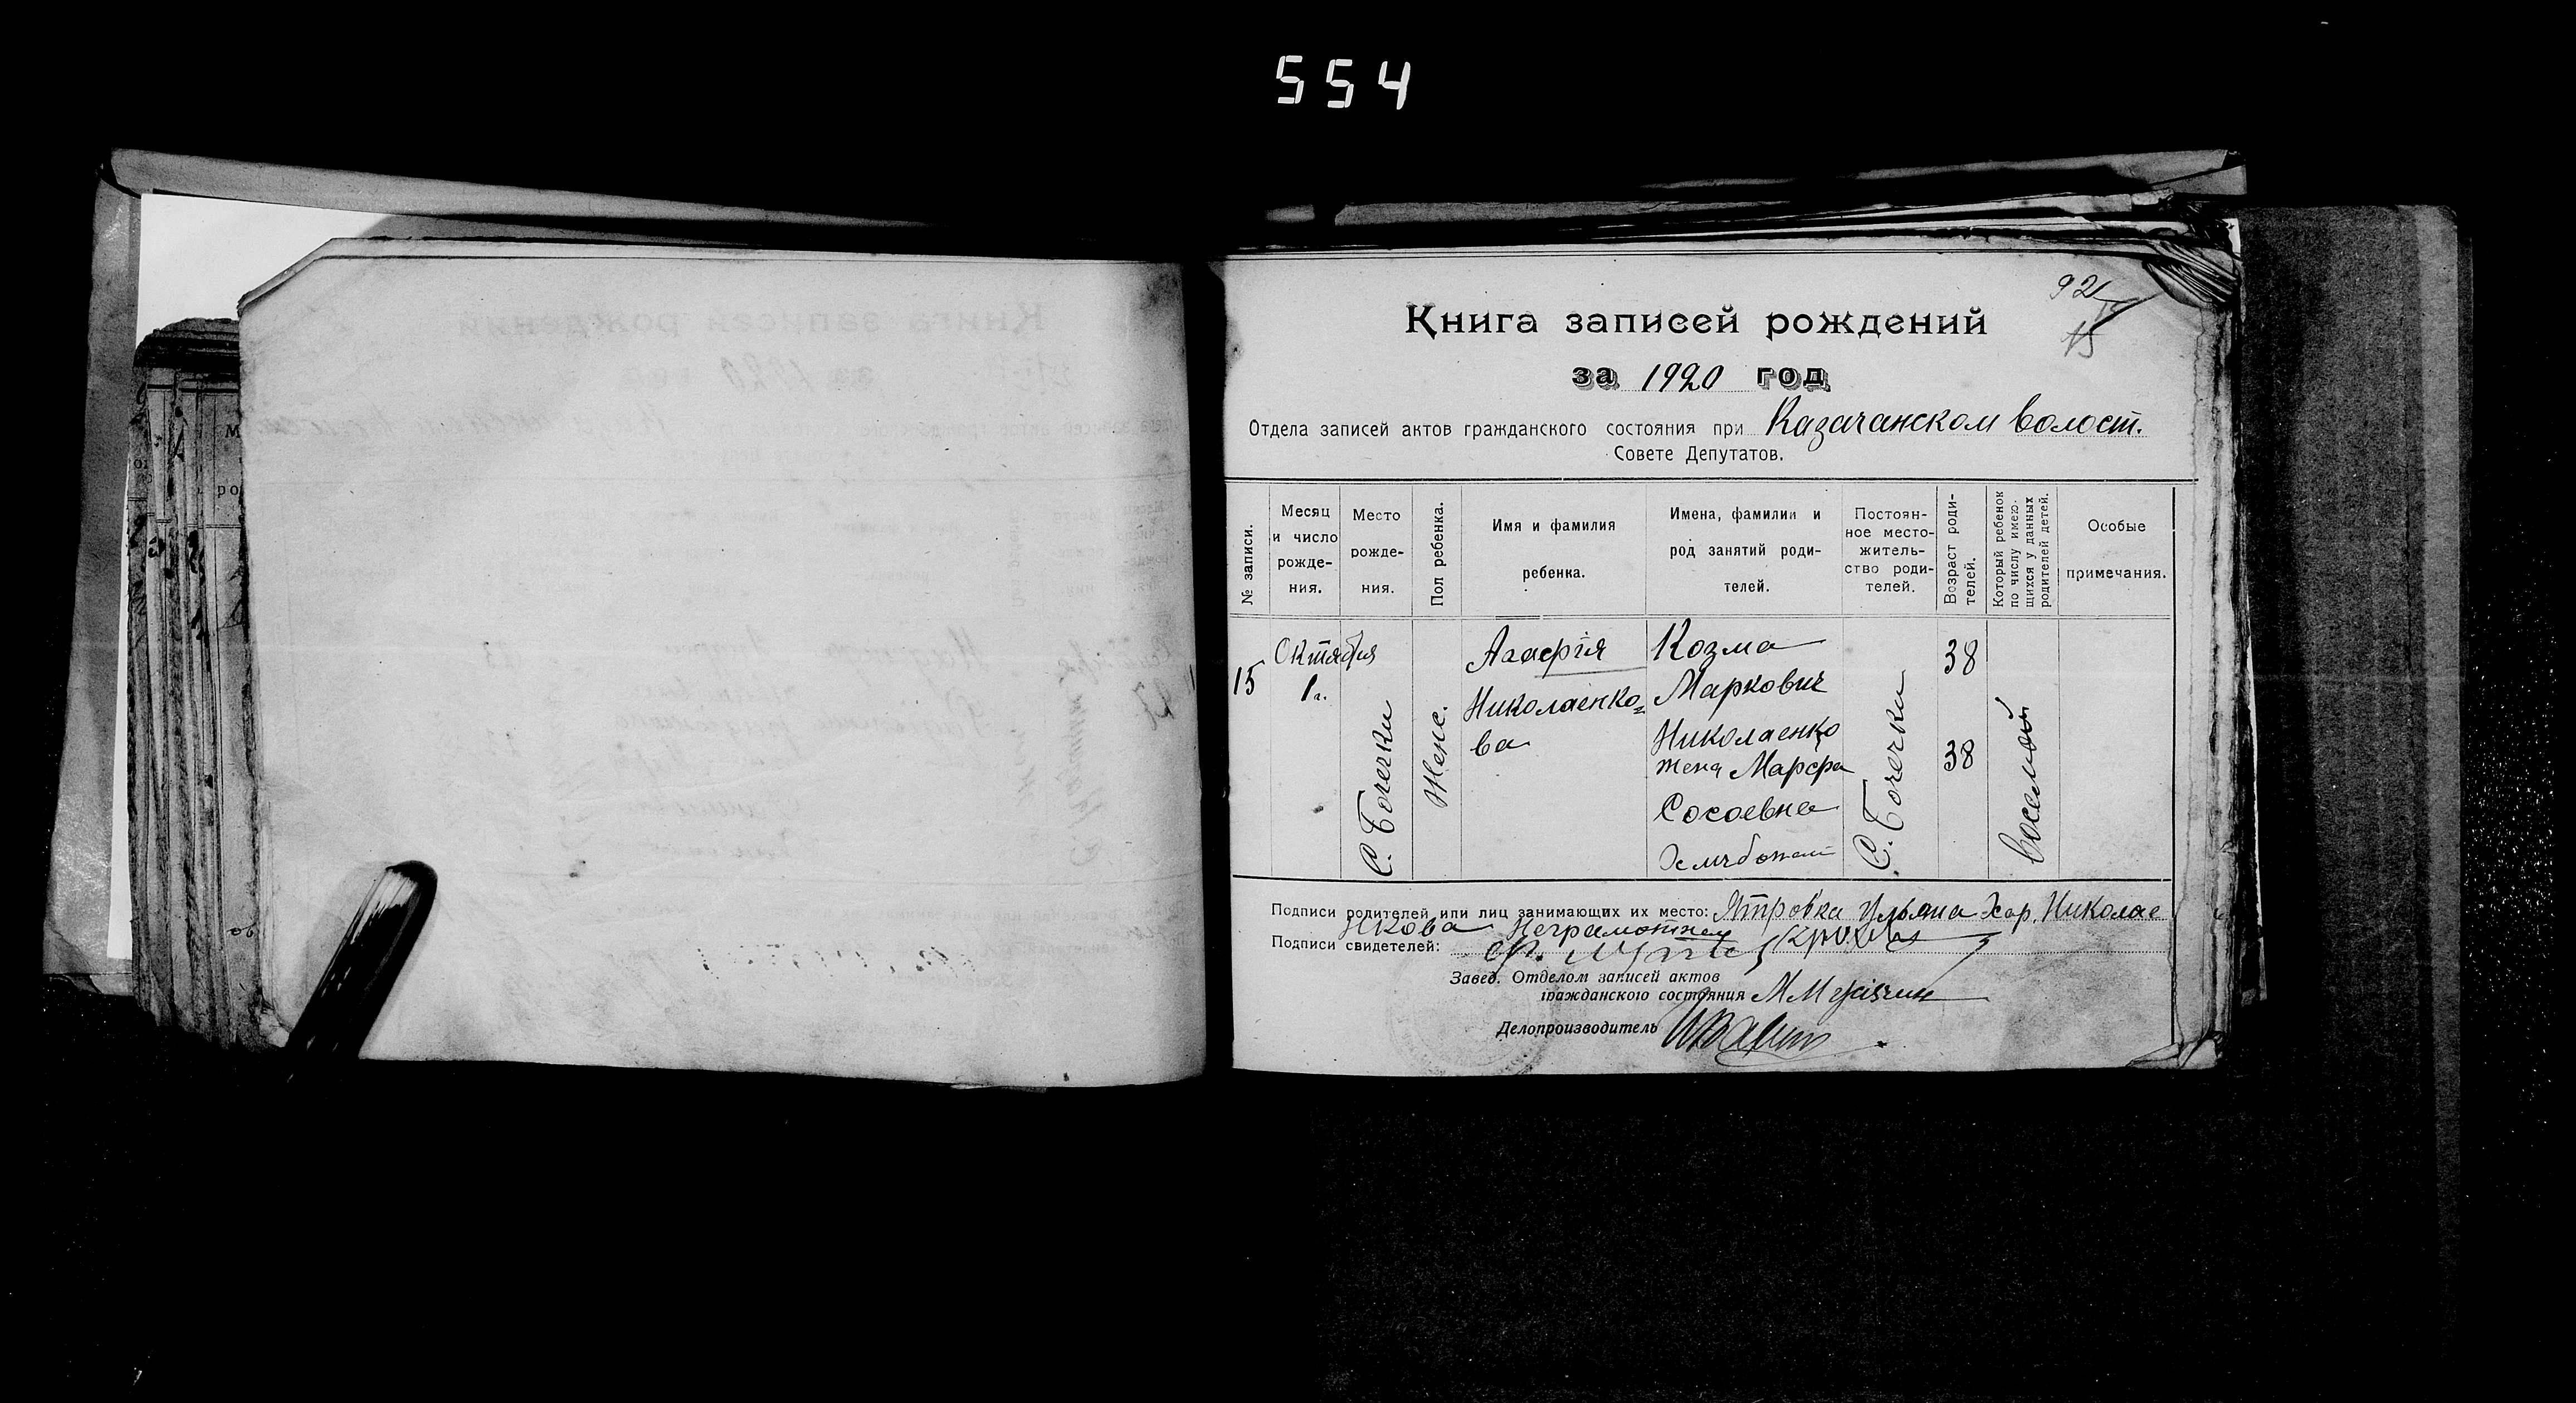 554
92
15
Книга записей рождений
за 1920 год
Отдела записей актов гражданского состояния при Казачанском волост.
Совете Депутатов.
№ записи.
Месяц и число рожде-ния.
Место рожде-ния.
Пол ребенка.
Имя и фамилия ребенка.
Имена, фамилии и род занятий роди-телей.
Постоян-ное место-житель-ство роди-телей.
Возраст роди-телей.
Который ребенок по числу имею-щихся у данных родителей детей.
Особые примечания.
15
Октября
1го.
С. Бочечки
Женс.
Агафія
Николаенко=
ва
Козма
Маркович
Николаенко
жена Марфа
Сосоевна
С. Бочечки
38
38
восемой
Подписи родителей или лиц занимающих их место: Ульяна Хар. Николае
нкова Неграмотная
Подписи свидетелей:
Завед. Отделом записей актов
гражданского состояния
Делопроизводитель